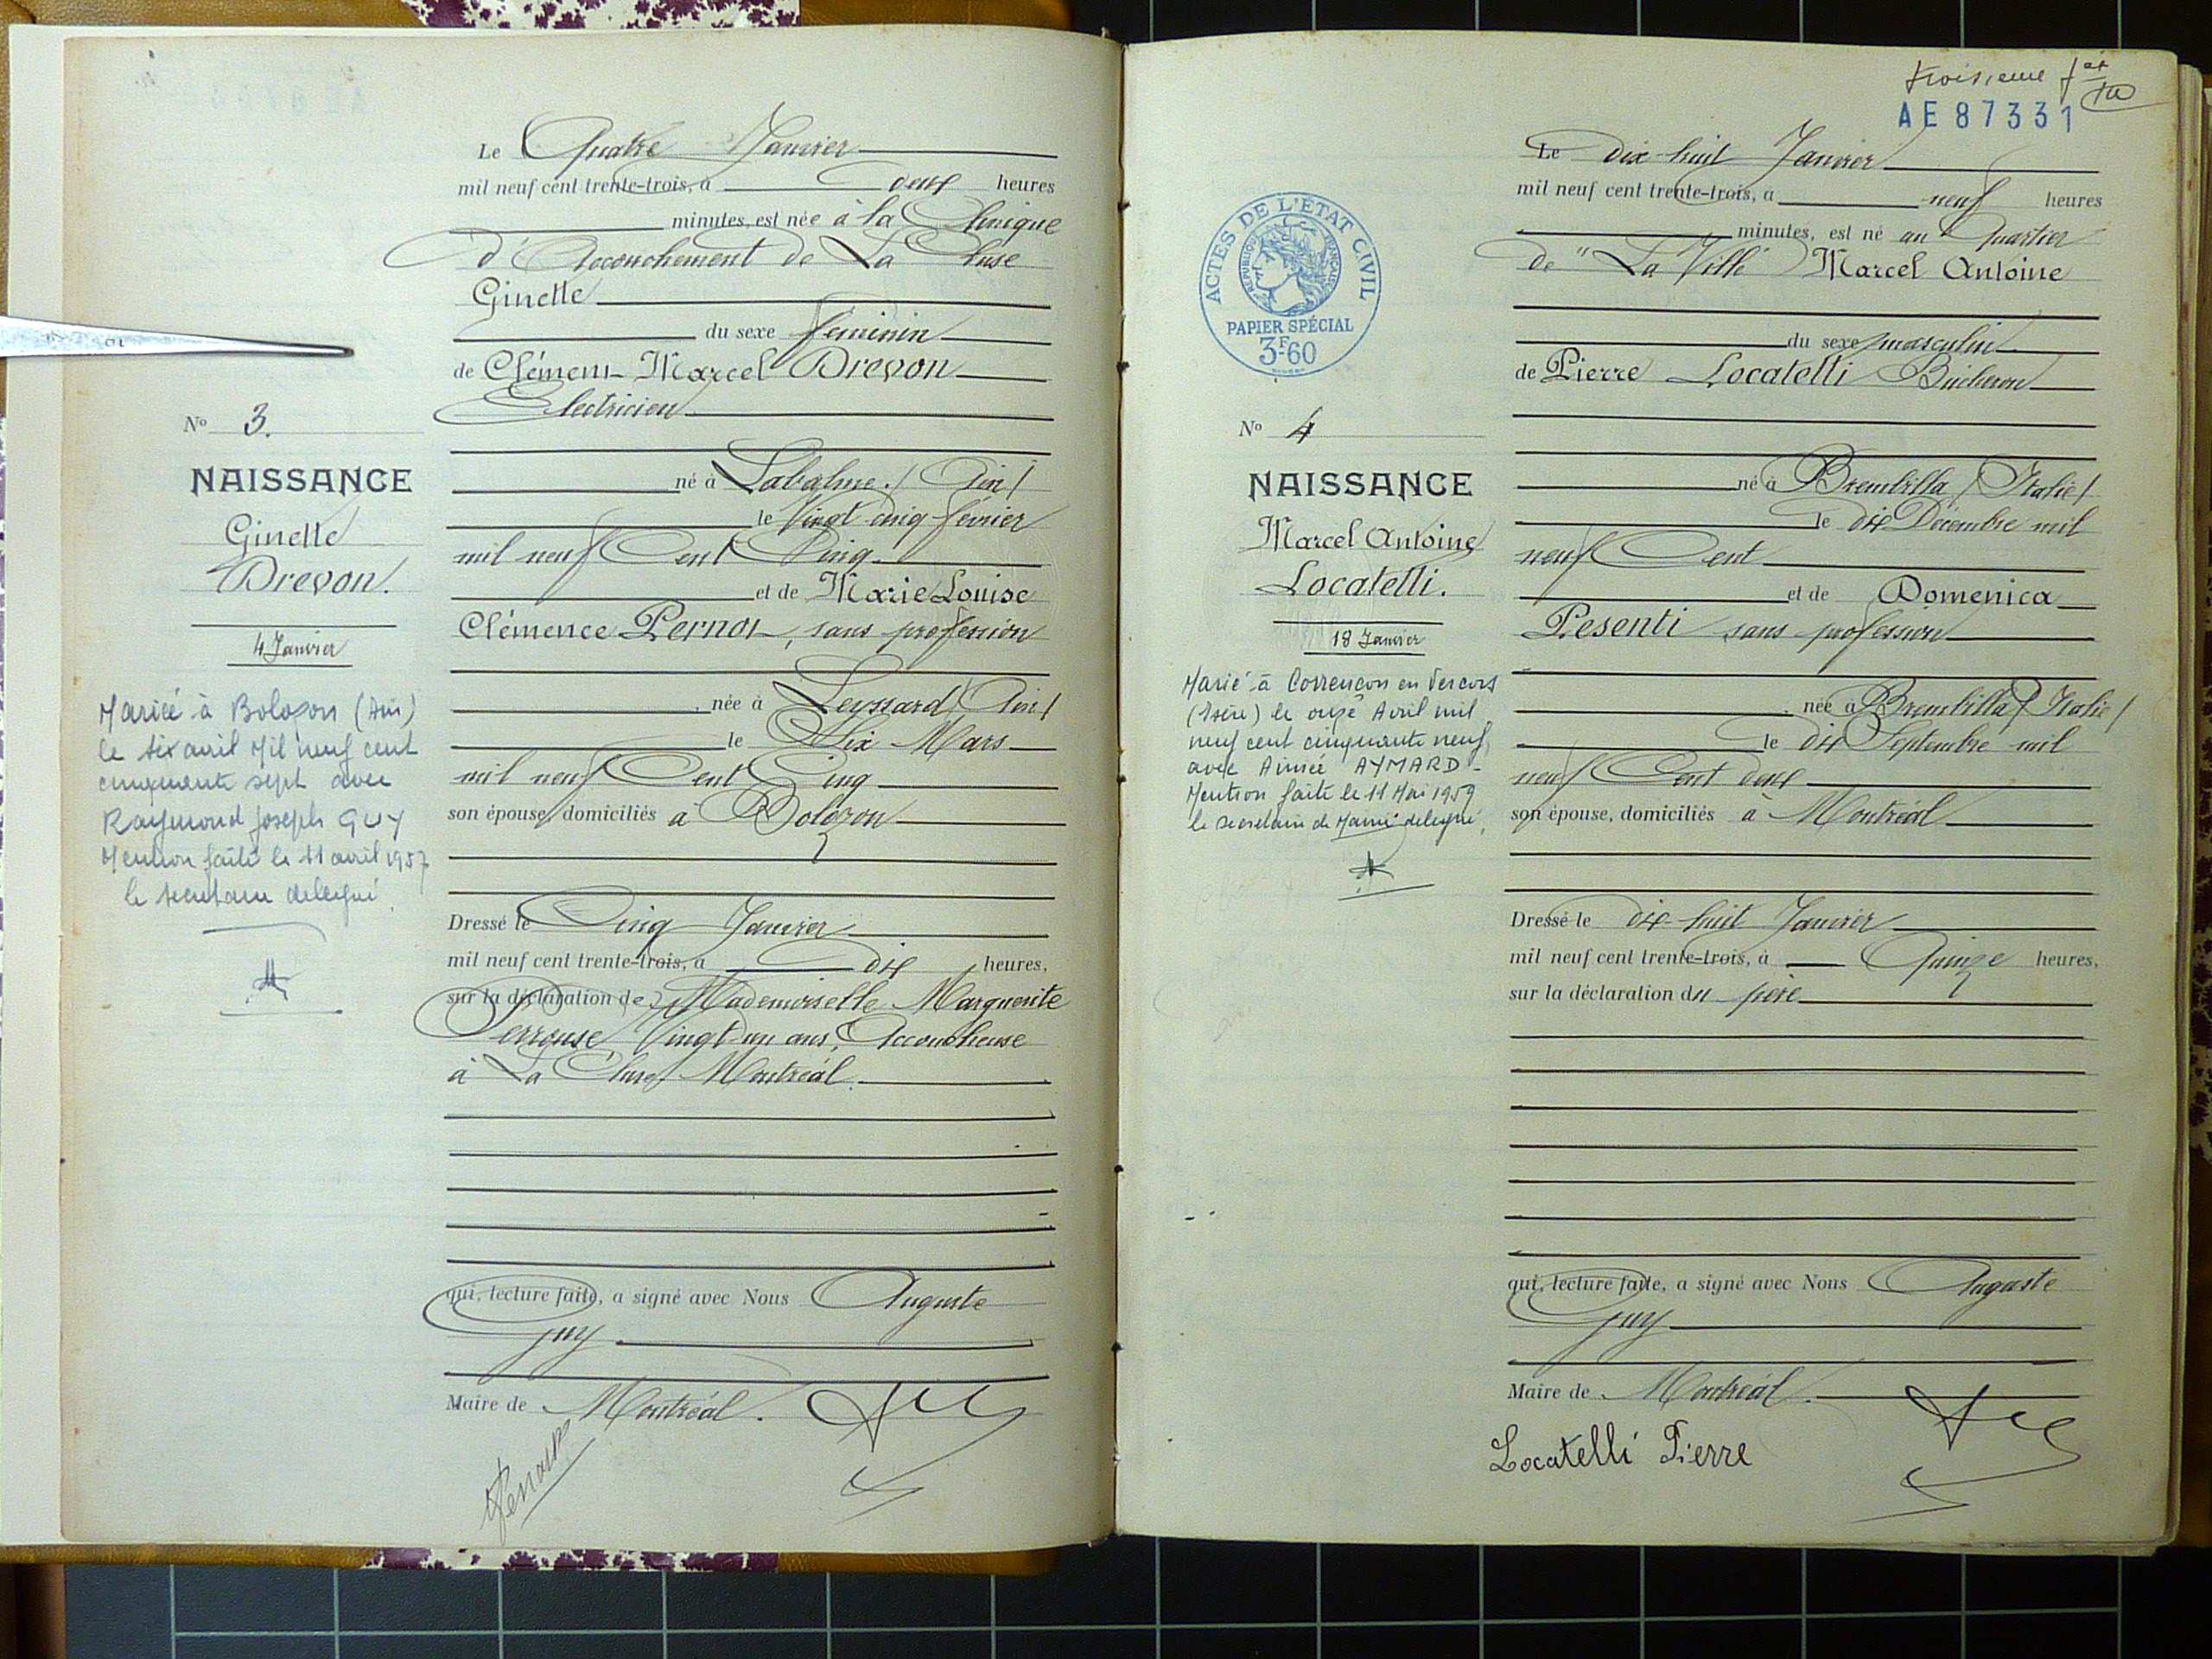 Le Quatre Janvier
mil neuf cent trente-trois, à deux heures
minutes, est née à la Clinique
d'Accouchement de La Cluse
Ginette
du sexe féminin
de Clément Marcel Drevon
Electricien
né à Labalme (Ain)
le Vingt cinq février
mil neuf Cent Cinq.
et de Marie Louise
Clémence Pernot, sans profession
née à Leyssard (Ain)
le Six Mars
mil neuf Cent Cinq
son épouse, domiciliés à Bolozon
Dressé le Cinq Janvier
mil neuf cent trente-trois, à dix heures,
sur la déclaration de Mademoiselle Marguerite
Perrouse Vingt-un ans, Accoucheuse
à La Cluse Montréal.
qui, lecture faite, a signé avec Nous Auguste
Guy
Maire de Montréal.
No 3.
NAISSANCE
Ginette
Drevon.
4 Janvier
Mariée à Bolozon (Ain)
le six avril Mil neuf cent
cinquante sept avec
Raymond Joseph GUY
Mention faite le 11 avril 1957
le secrétaire délégué
troisième
AE 87331
Le dix-huit Janvier
mil neuf cent trente-trois, à neuf heures
minutes, est né au Quartier
de "La Ville" Marcel Antoine
du sexe masculin
de Pierre Locatelli Bûcheron
né à Brembilla (Italie)
le dix Décembre mil
neuf Cent
et de Domenica
Pesenti sans profession
née à Brembilla (Italie)
le dix Septembre mil
neuf Cent deux
son épouse, domiciliés à Montréal
Dressé le dix-huit Janvier
mil neuf cent trente-trois, à Quinze heures,
sur la déclaration du père
qui, lecture faite, a signé avec Nous Auguste
Guy
Maire de Montréal.
Locatelli Pierre
ACTES DE L'ÉTAT CIVIL
RÉPUBLIQUE FRANÇAISE
PAPIER SPÉCIAL
3F60
No 4
NAISSANCE
Marcel Antoine
Locatelli.
18 Janvier
Marié à Corrençon en Vercors
(Isère) le onze Avril mil
neuf cent cinquante neuf,
avec Aimée AYMARD -
Mention faite le 11 Mai 1959
le secrétaire de Mairie délégué,